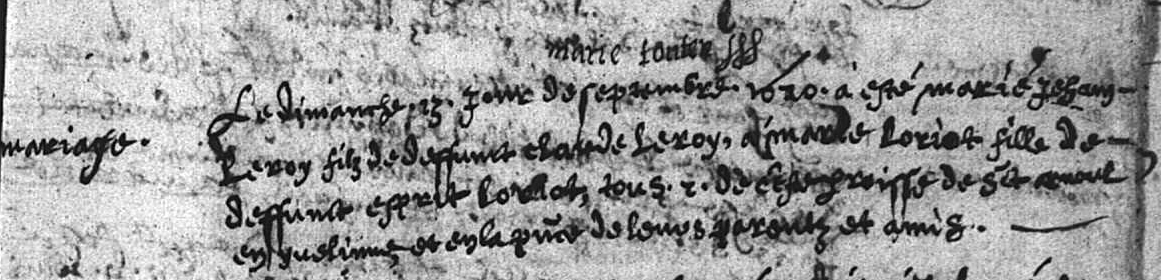 marie
mariage.
Le dimanche 13. Jour de septembre. 1620. a esté marié Jehan
Leroy filz de deffunct claude Leroy, a marie Loriot fille de
deffunct esprit Loriot, touz. 2. de ceste proisse de St arnoul
en yvelinnes et en la pñce de leurs parentz et amiz.